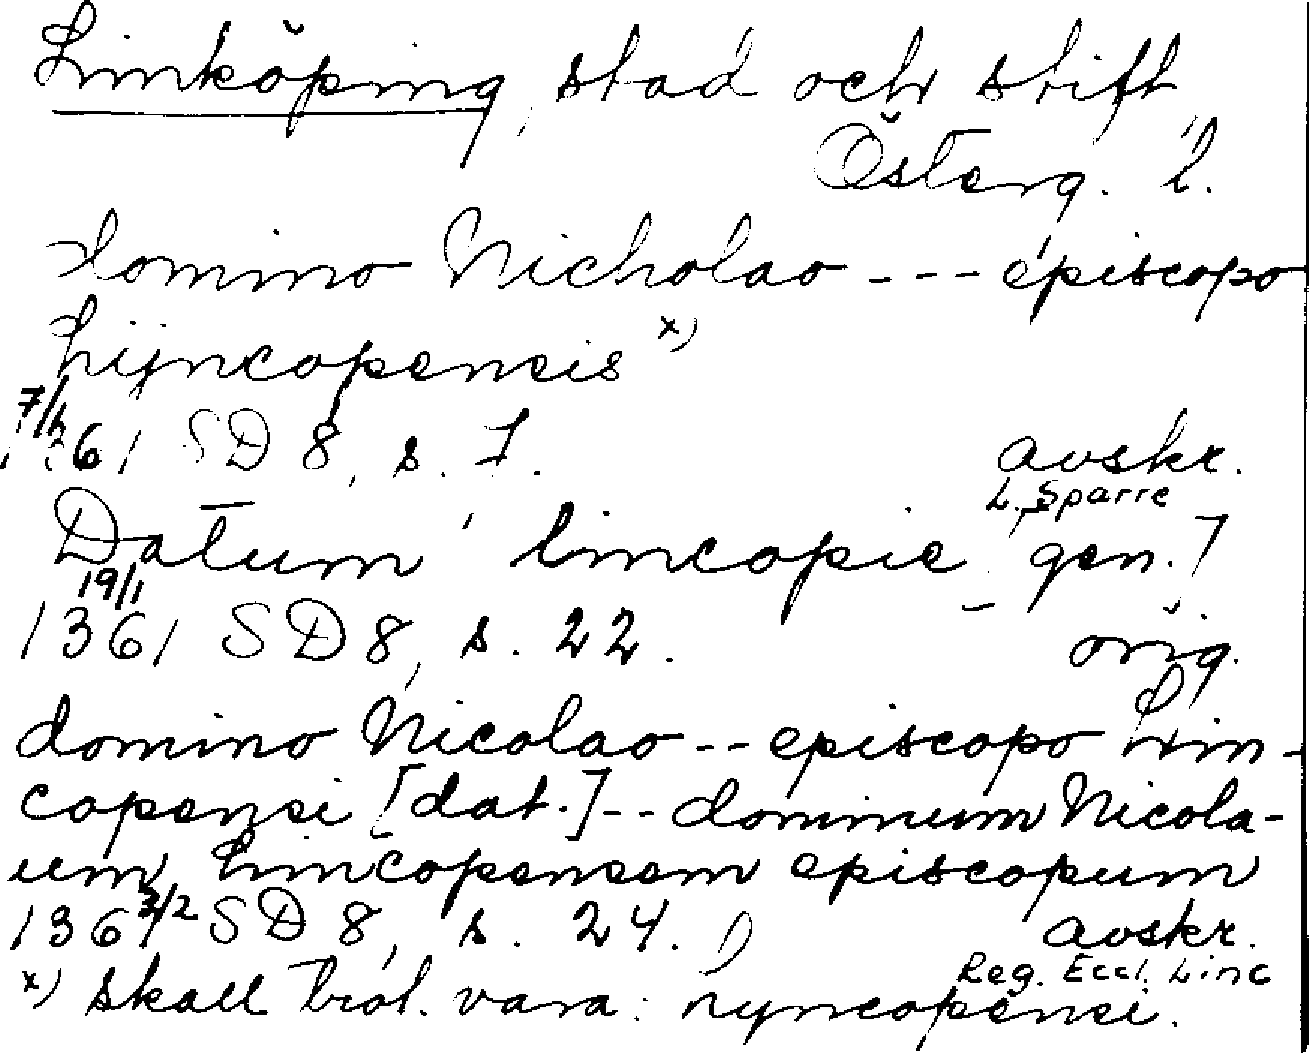 Linköping, stad och stift,
Österg. l.
domino Nicholao --- episcopo
Lijncopensis x)
7/1
1361 SD 8, s. 7. avskr.
L. Sparre
Datum lincopie gen.7
19/1
1361 SD 8, s. 22. orig.
domino Nicolao -- episcopo Lin-
copensi [dat.] -- dominum Nicola-
um Lincopensem episcopum
1361 3/2 SD 8, s. 24. avskr.
Reg. Eccl. Linc
x) skall trol. vara: nyncopensi.